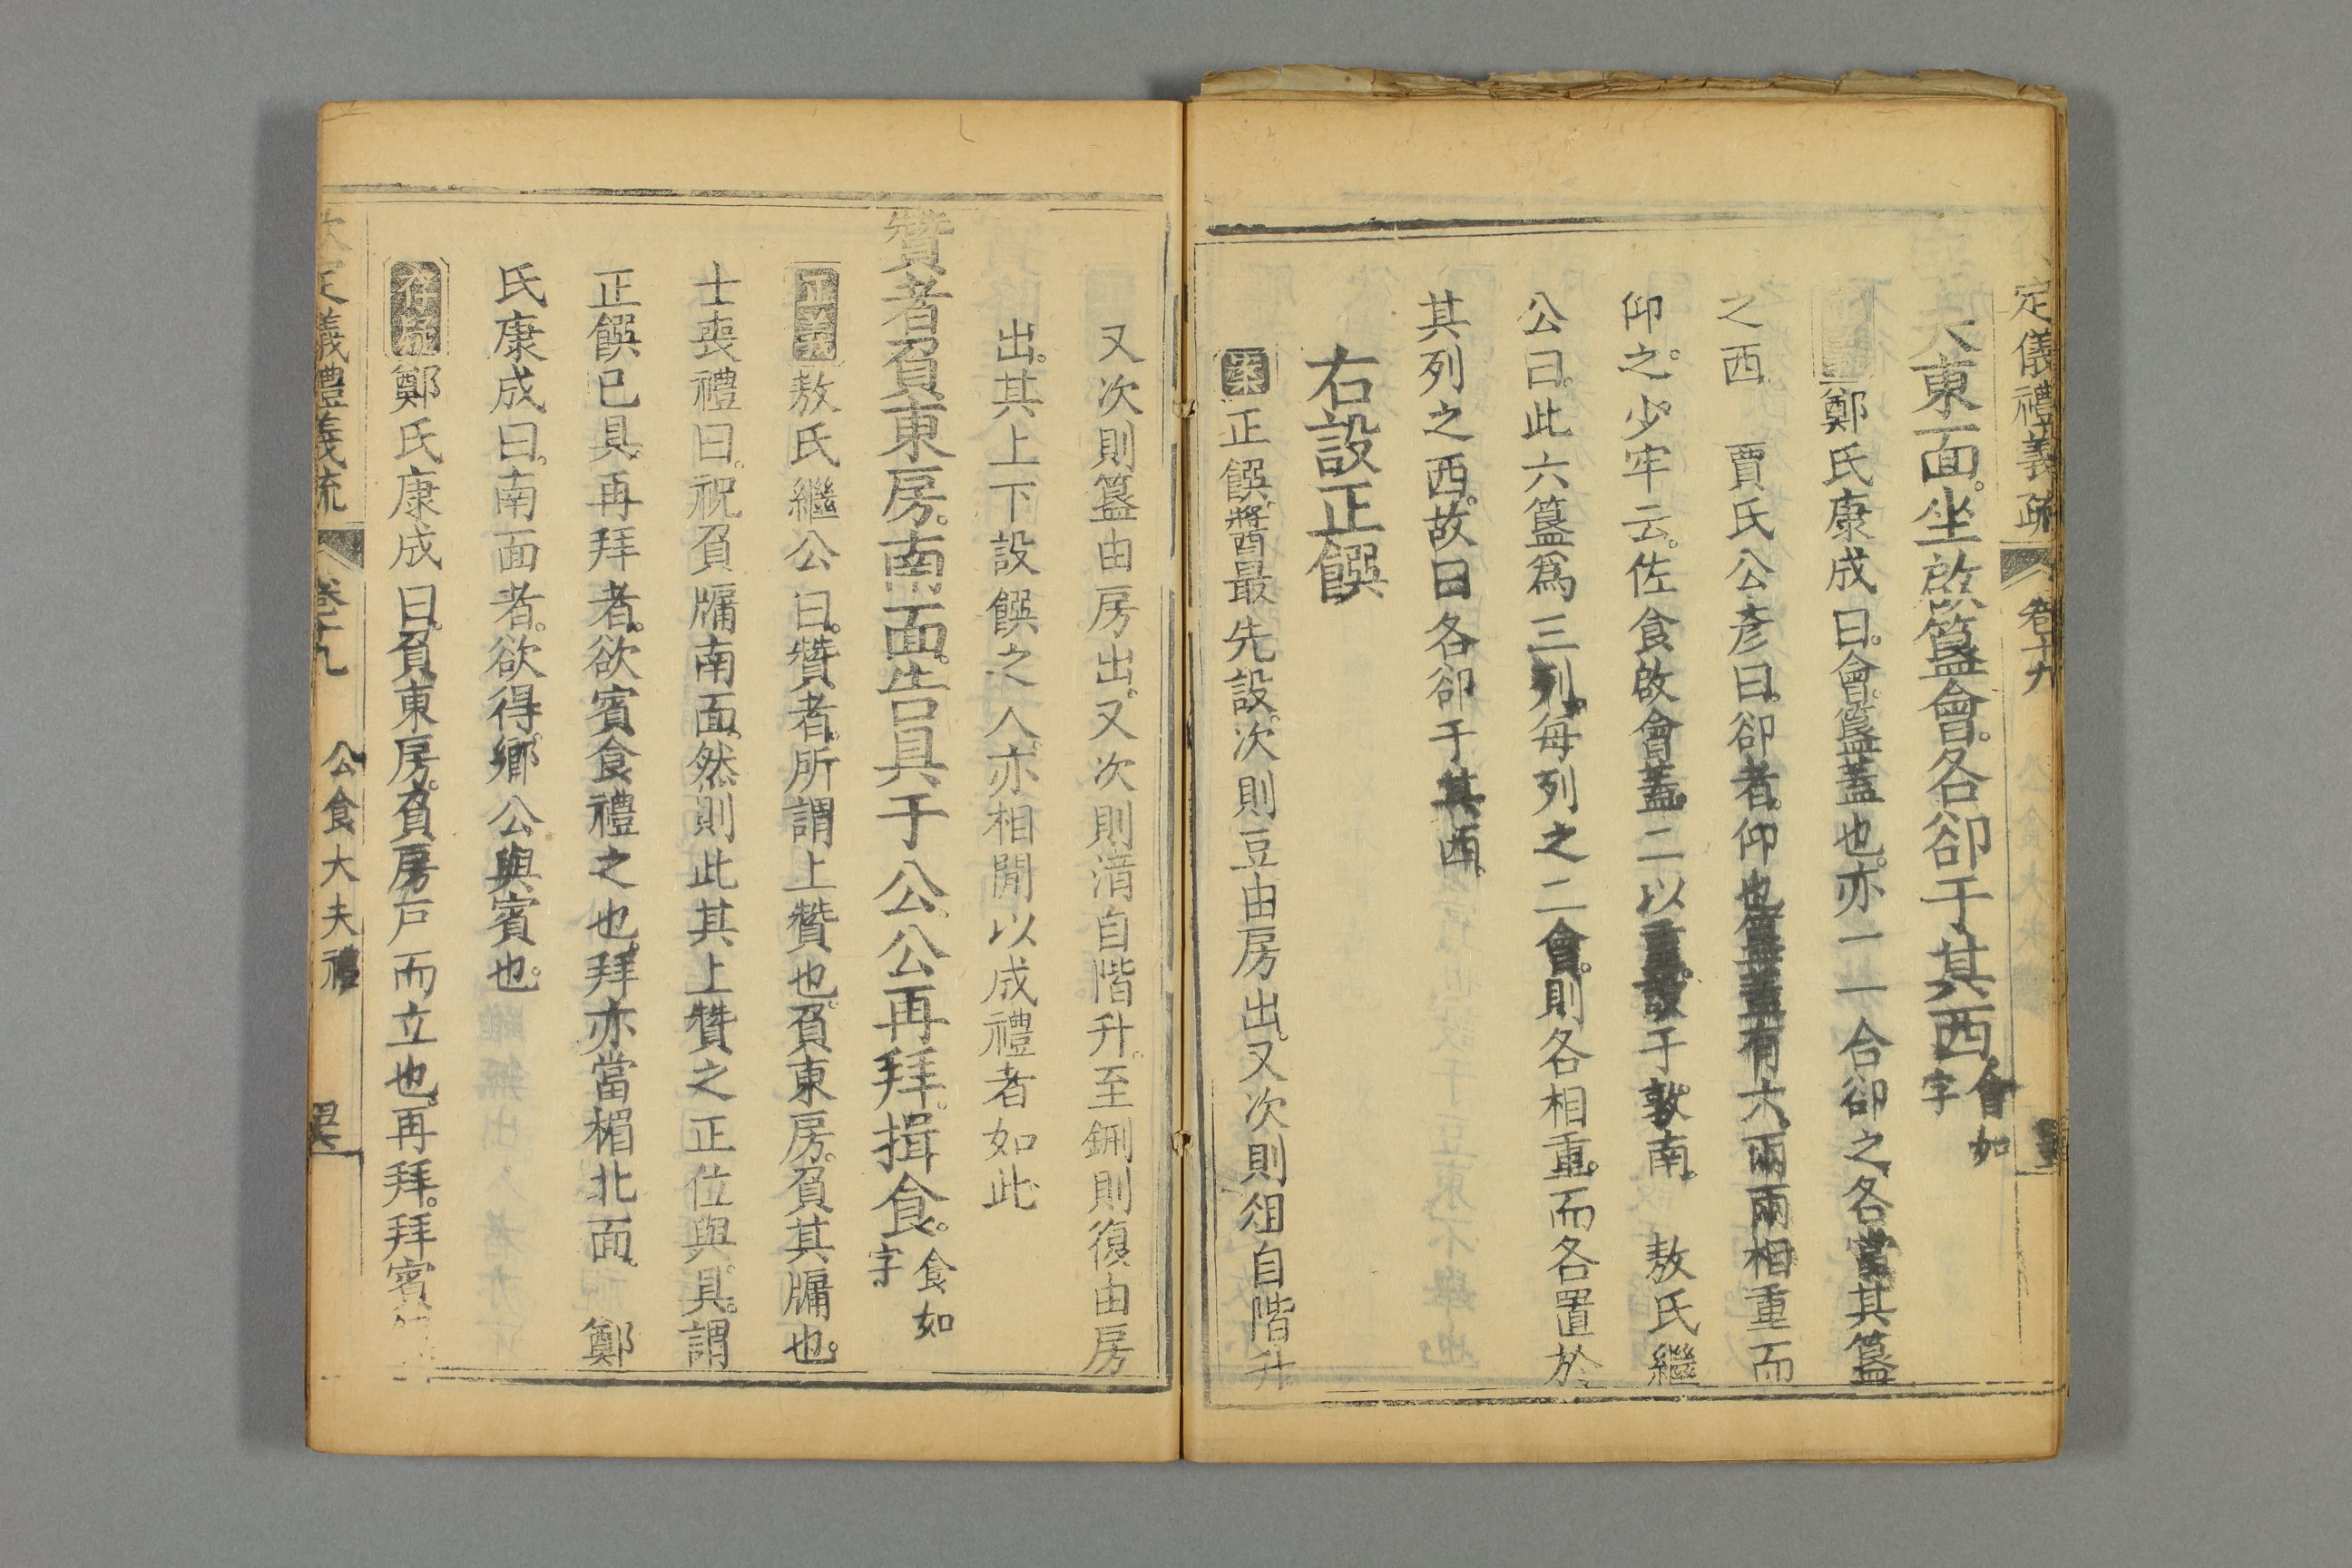 定儀禮義疏 卷十九
夫東面坐啟簋會各卻于其西會如字
鄭氏康成曰會簋蓋也亦一一合卻之各當其簋
之西 賈氏公彥曰卻者仰也簋蓋有六兩兩相重而
仰之少牢云佐食啟會蓋二以重設于敦南 敖氏繼
公曰此六簋爲三列每列之二會則各相重而各置於
其列之西故曰各卻于其西
右設正饌
案正饌醬最先設次則豆由房出又次則俎自階升
又次則簋由房出又次則湇自階升至鉶則復由房
出其上下設饌之人亦相閒以成禮者如此
贊者負東房南面告具于公公再拜揖食食如字
正義敖氏繼公曰贊者所謂上贊也負東房負其牖也
士喪禮曰祝負牖南面然則此其上贊之正位與具謂
正饌已具再拜者欲賓食禮之也拜亦當楣北面 鄭
氏康成曰南面者欲得鄉公與賓也
存疑鄭氏康成曰負東房負房戶而立也再拜拜賓
定儀禮義疏 卷十九 公食大夫禮